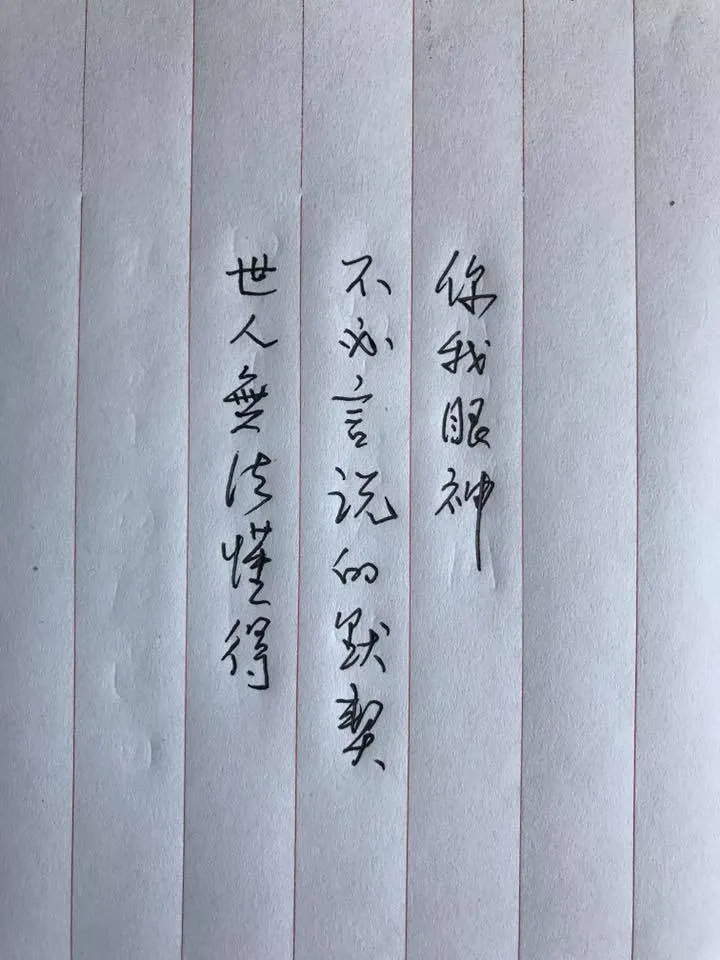 你我眼神
不必言说的默契
世人無法懂得